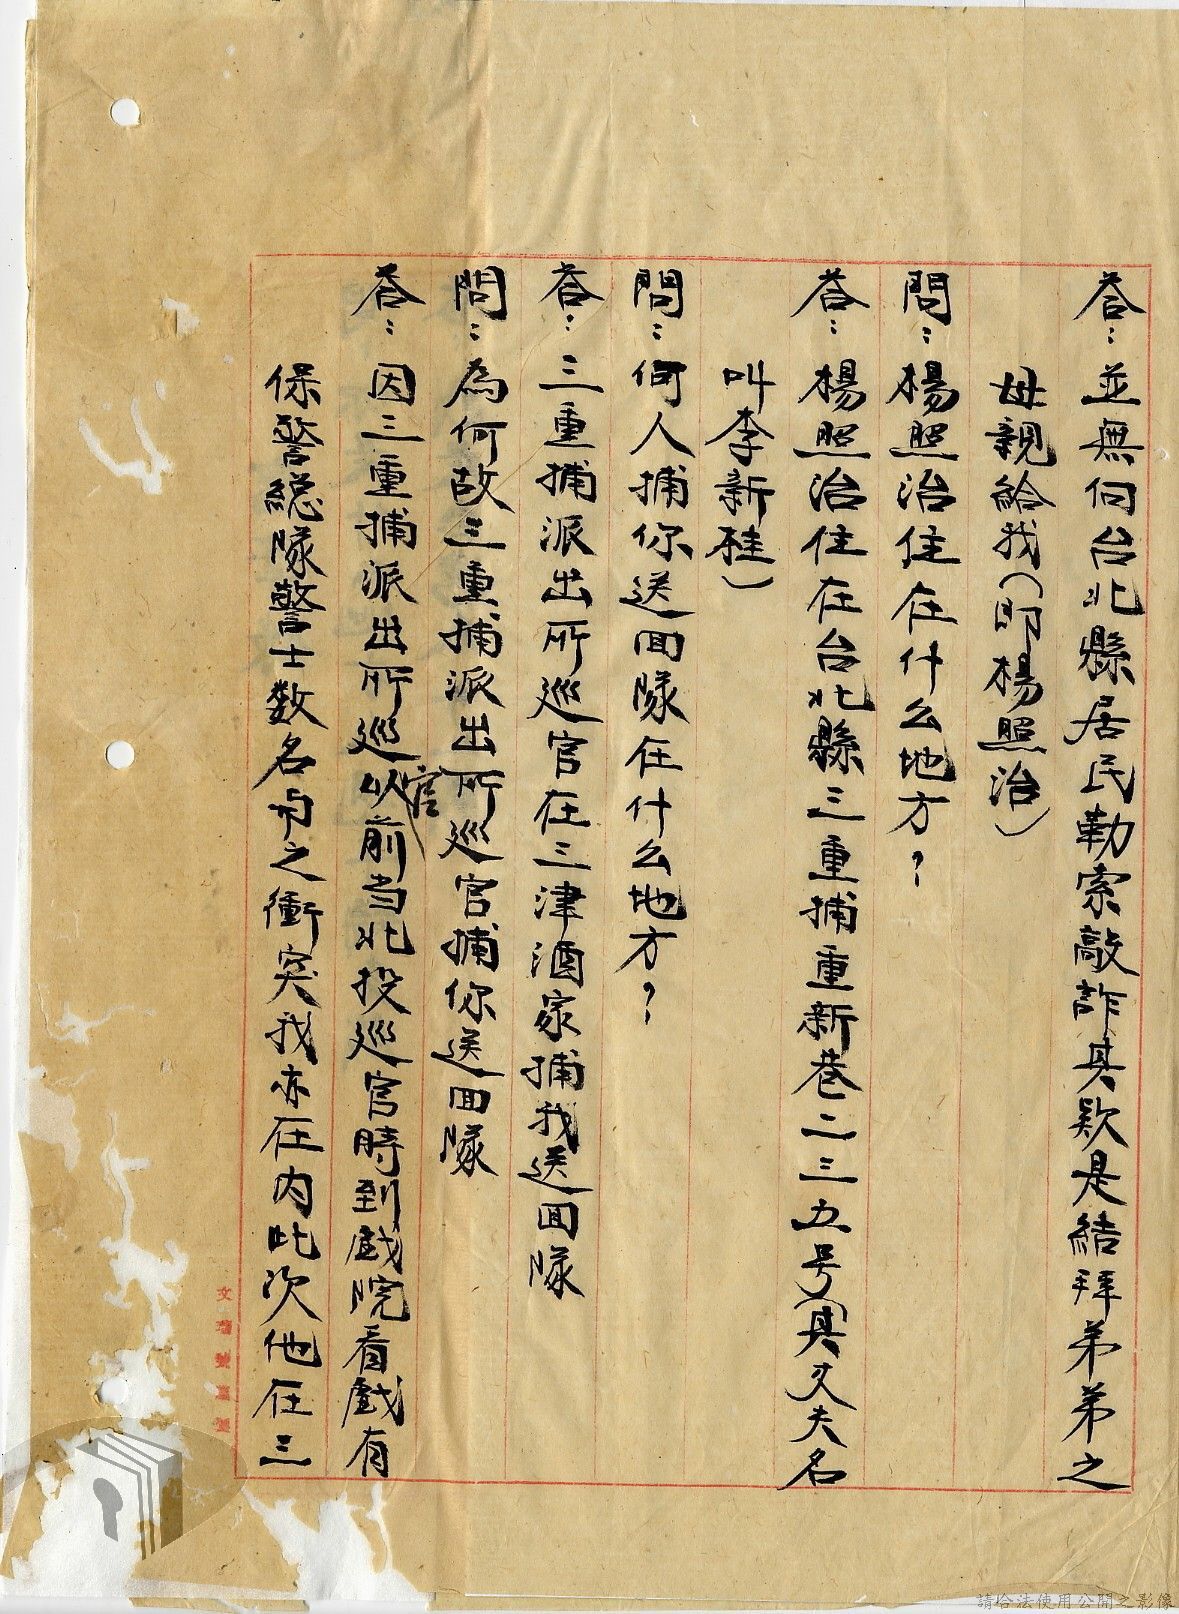 答：並無向台北縣居民勒索敲詐其欵是結拜弟弟之
母親給我（即楊照治）
問：楊照治住在什么地方？
答：楊照治住在台北縣三重捕重新巷二三五号（其丈夫名
叫李新桂）
問：何人捕你送回隊在什么地方？
答：三重捕派出所巡官在三津酒家捕我送回隊
問：為何故三重捕派出所巡官捕你送回隊
答：因三重捕派出所巡官以前当北投巡官時到戲院看戲有
保警總隊警士数名与之衝突我亦在内此次他在三
請合法使用公開之影像